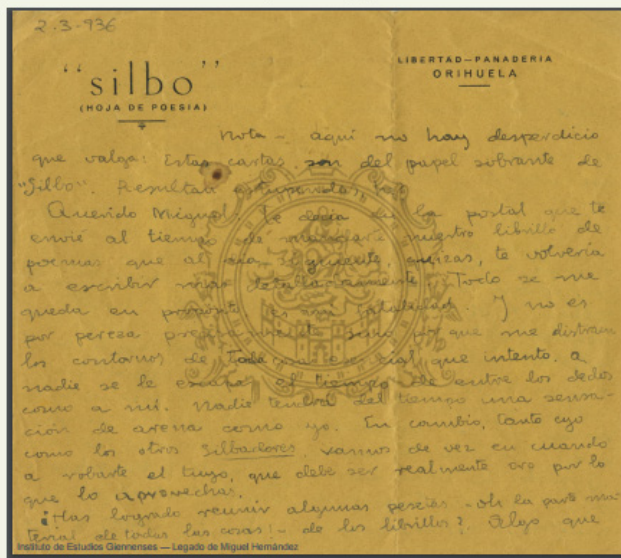 2-3-936
"silbo"
(HOJA DE POESIA)
LIBERTAD—PANADERIA
ORIHUELA
Nota - aquí no hay desperdicio
que valga: Estas cartas son del papel sobrante de
"Silbo". Resultan
Querido Miguel: Te decía en la postal que te
envié al tiempo de nuestro librillo de
poemas que al día siguiente, quizás, te volvería
a escribir más Todo se me
queda en propósito es mi fatalidad. Y no es
por pereza precisamente sino porque me distraen
los contornos de toda cosa esencial que intento. a
nadie se le escapa el tiempo de entre los dedos
como a mí. Nadie tendrá del tiempo una sensa-
ción de arena como yo. En cambio, tanto cojo
como los otros Silbadores, vamos de vez en cuando
a robarte el tuyo, que debe ser realmente oro por lo
que lo aprovechas.
¿Has logrado reunir algunas pesetas - oh la parte ma-
terial de todas las cosas! - de los librillos? Algo que
Instituto de Estudios Giennenses — Legado de Miguel Hernández